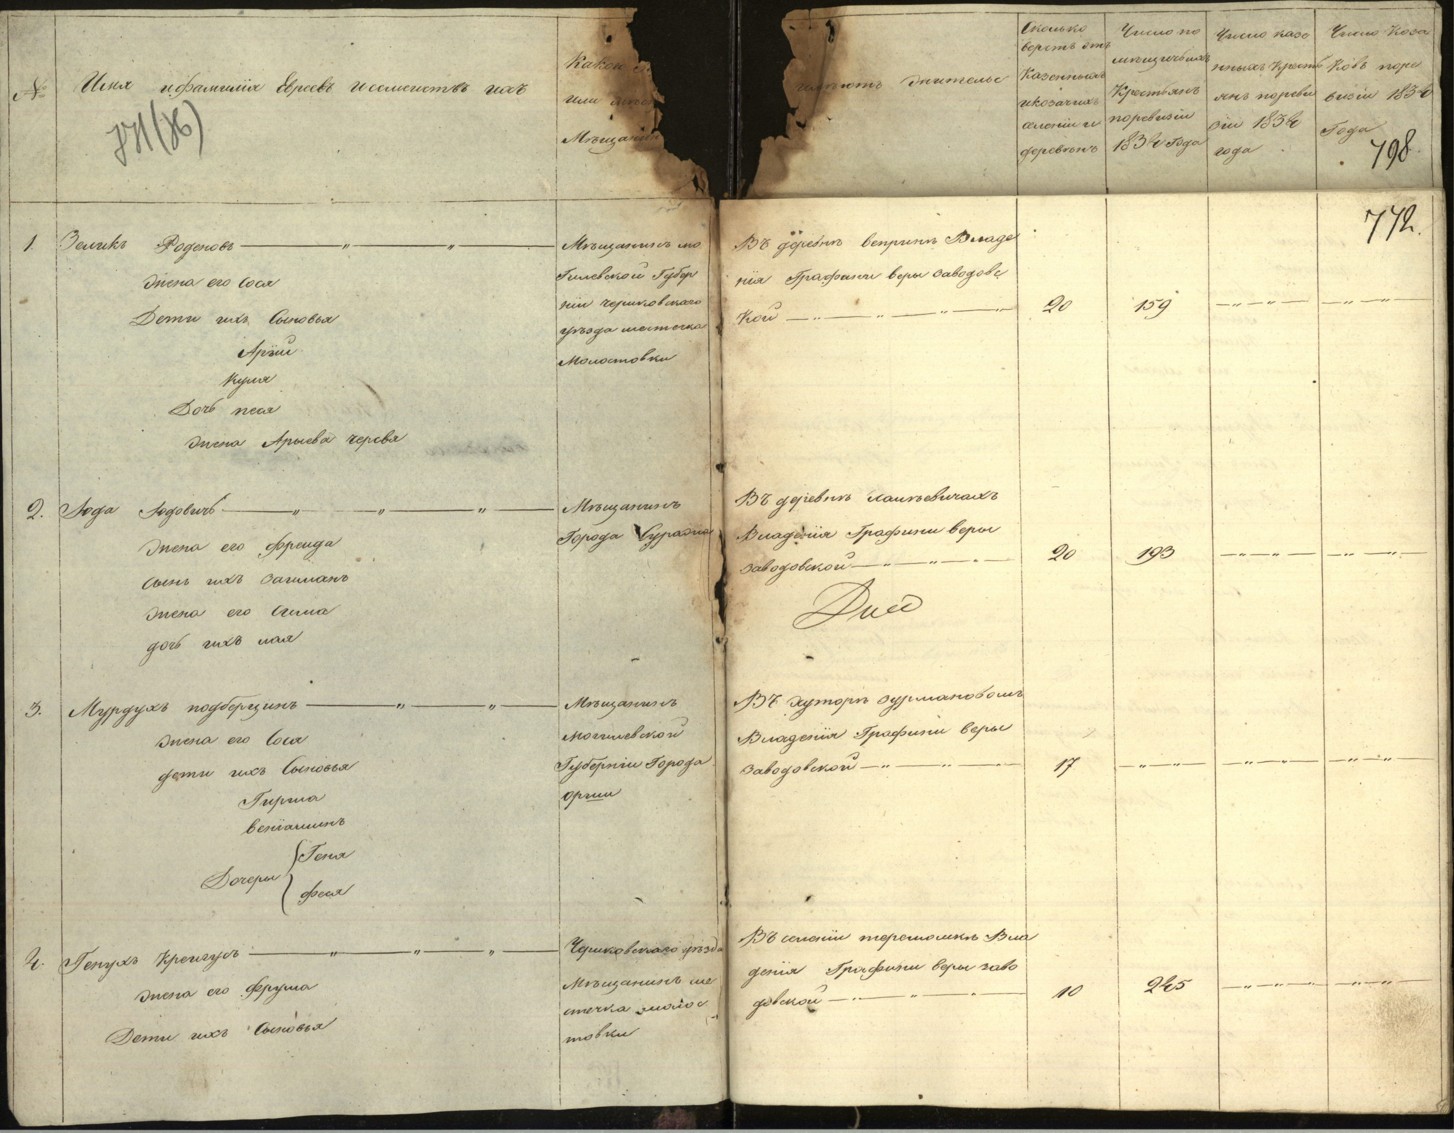 №
Имя и фамилія Евреевъ и семействъ ихъ
771 (об)
Какой
или
Мѣщани
имѣютъ жительс
Сколько
верстъ отъ
Казенныхъ
и козачихъ
селеніи и
деревень
Число по
мещичьихъ
Крестьянъ
поревизіи
1834 Года
Число казе
нныхъ Крестъ
янъ поревы
зіи 1834
года
Число Коза
Ковъ поре
визіи 1834
Года
798
772.
1. Зеликъ Роденовъ — " — " —
Жена его Сося
Дети ихъ Сыновья
Арйи
Куля
Дочь песя
Жена Арыева черова
Мѣщанинъ мо
Гилевской Губер
ніи чериковского
уѣзда местечка
Молостовки
Въ деревнѣ вепринѣ Владе
нія Графини веры заводовс
Кой — " — " — " —
20
159
— " — " — " —
— " — " — " —
2. Юда Юдовичъ — " — " — " —
Жена его фрейда
сынъ ихъ Залманъ
Жена его Сима
дочь ихъ мая
Мѣщанинъ
Города Суража
Въ деревнѣ
Владенія Графини веры
заводовской — " — " — " —
20
193
— " — " — " —
— " — " — " —
3. Мурдухъ подберщинъ — " — " —
Жена его Сося
дети ихъ Сыновья
Гирша
веніаминъ
Дочеры { Геня
фася
Мѣщанинъ
могилевской
Губерніи Города
орши
Въ Хуторѣ Сурмановомъ
Владенія Графини веры
заводовской — " — " — " —
17
— " — " —
— " — " — " —
— " — " —
4. Генухъ — " — " — " —
Жена его фрума
Дети ихъ Сыновья
Чериковского уѣзда
Мѣщанинъ ме
стечка молос
товки
Въ селеніи терешомкѣ Вла
денія Графини веры заво
довской — " — " — " —
10
245
— " — " — " —
— " — " —